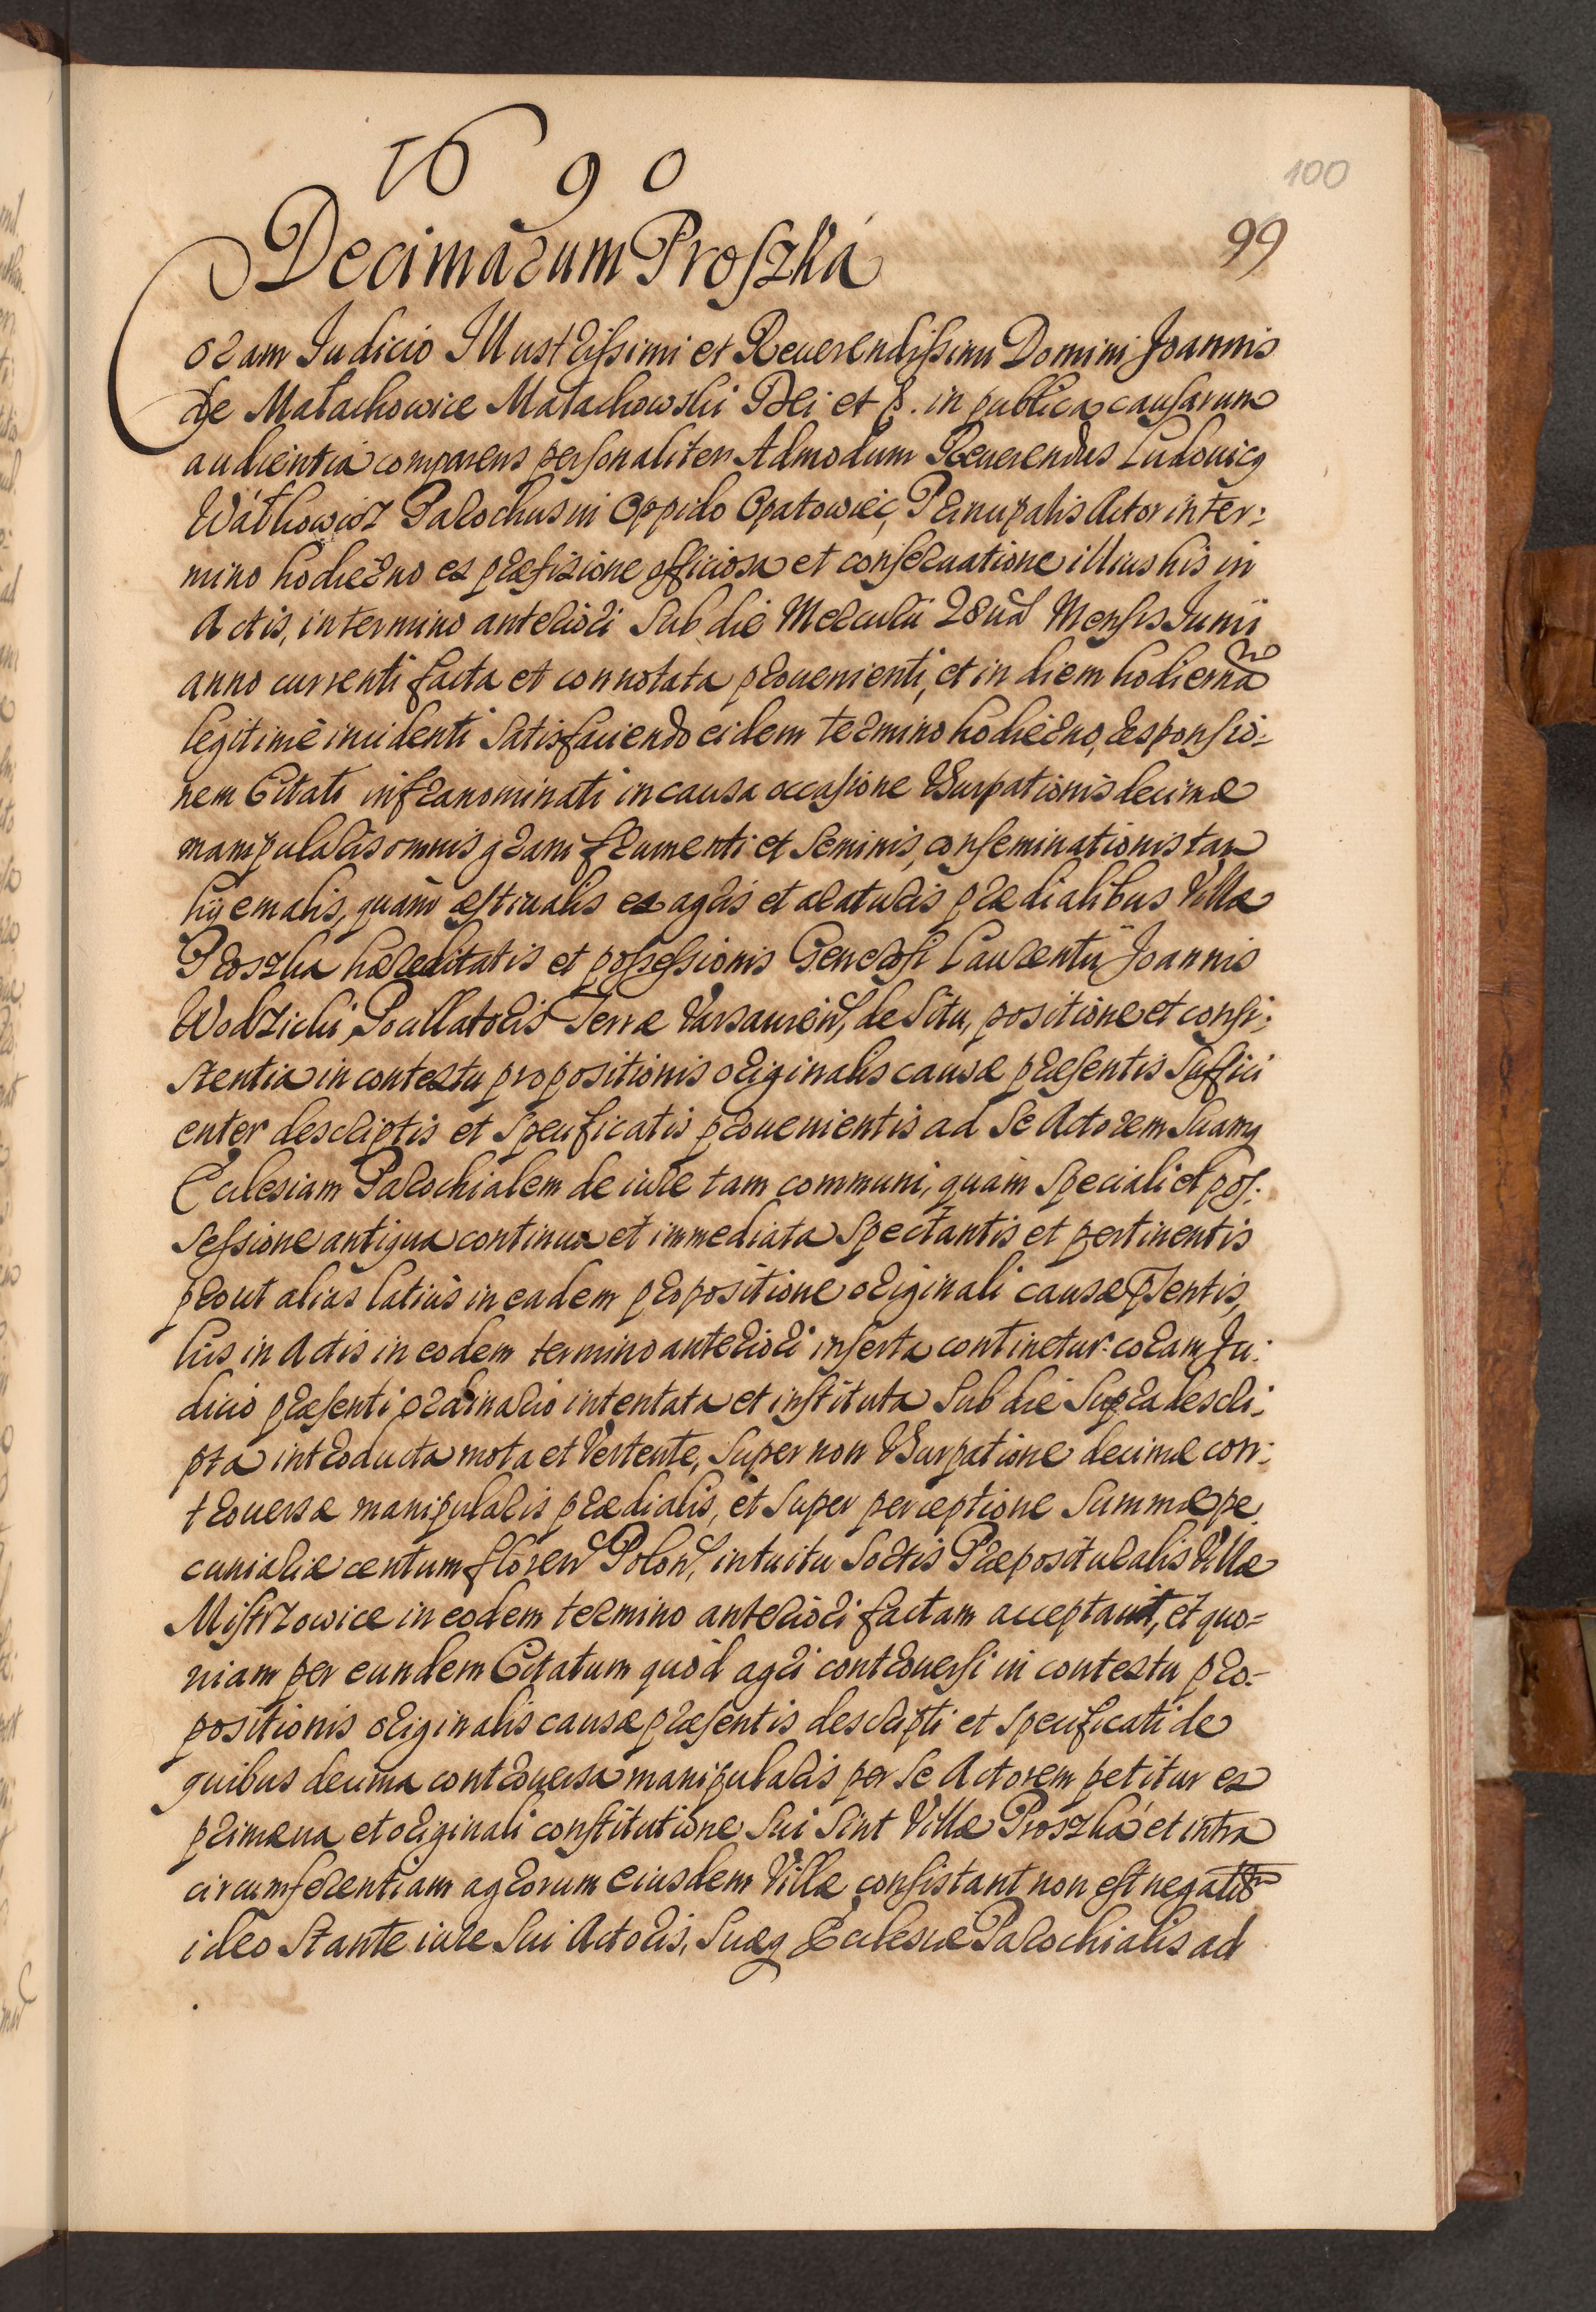 1690
100
99
Decimarum Proszka
Coram Iudicio Illustrissimi et Reuerendissimi Domini Joannis
de Małachowice Małachowski Dei et S. in publica causarum
audientia comparens personaliter Admodum Reuerendus Ludouicq
Wałkowicz Parochus in Oppido Opatowiec, Principalis Actor in ter:
mino hodierno ex præfixione officiosa et conseruatione illius his in
Actis, in termino anteriori sub die Mercurii 28ua Mensis Junii
anno currenti facta et connotata prouenienti, et in diem hodiernã
legitimè incidenti satisfaciendo eidem termino hodierno, responsio:
nem Citati infranominati in causa occasione Vsurpationis decimæ
manipularis omnis grani frumenti et seminis, conseminationis tam
hyemalis, quàm æstiualis ex agris et araturis prædialibus Villæ
Proszka hæreditatis et possessionis Generosi Laurentii Joannis
Wodzicki, Pocillatoris Terræ Varsauien, de situ, positione et consi:
stentia in contextu propositionis originalis causæ præsentis suffici
enter descriptis et specificatis prouenientis ad se Actorem suamq
Ecclesiam Parochialem de iure tam communi, quàm speciali et pos:
sessione antiqua continua et immediata spectantis et pertinentis
prout alias latiùs in eadem propositione originali causæ pñtis,
his in Actis in eodem termino anteriori inserta continetur: coram Ju:
dicio præsenti ordinario intentata et instituta sub die supra descri:
pta introducta mota et Vertente, super non Vsurpatione decimæ con:
trouersæ manipularis prædialis, et super perceptione summæ pe
cuniariæ centum floren Polon, intuitu sortis Præpositurralis Villæ
Mistrzowice in eodem termino anteriori factam acceptauit, et quo=
niam per eundem Citatum quòd agri controuersi in contextu pro=
positionis originalis causæ præsentis descripti et specificati de
quibus decima controuersa manipularis per se Actorem petitur ex
primæua et originali constitutione sui sint Villæ Proszka et intra
circumferentiam agrorum eiusdem Villæ consistant non est negatũ
ideo stante iure sui Actoris, suæq Ecclesiæ Parochialis ad